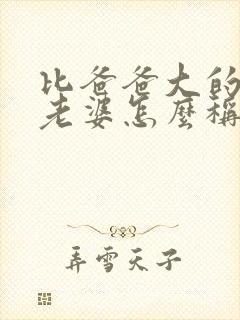 比爸爸大的
老婆怎麼稱
弄雪天子